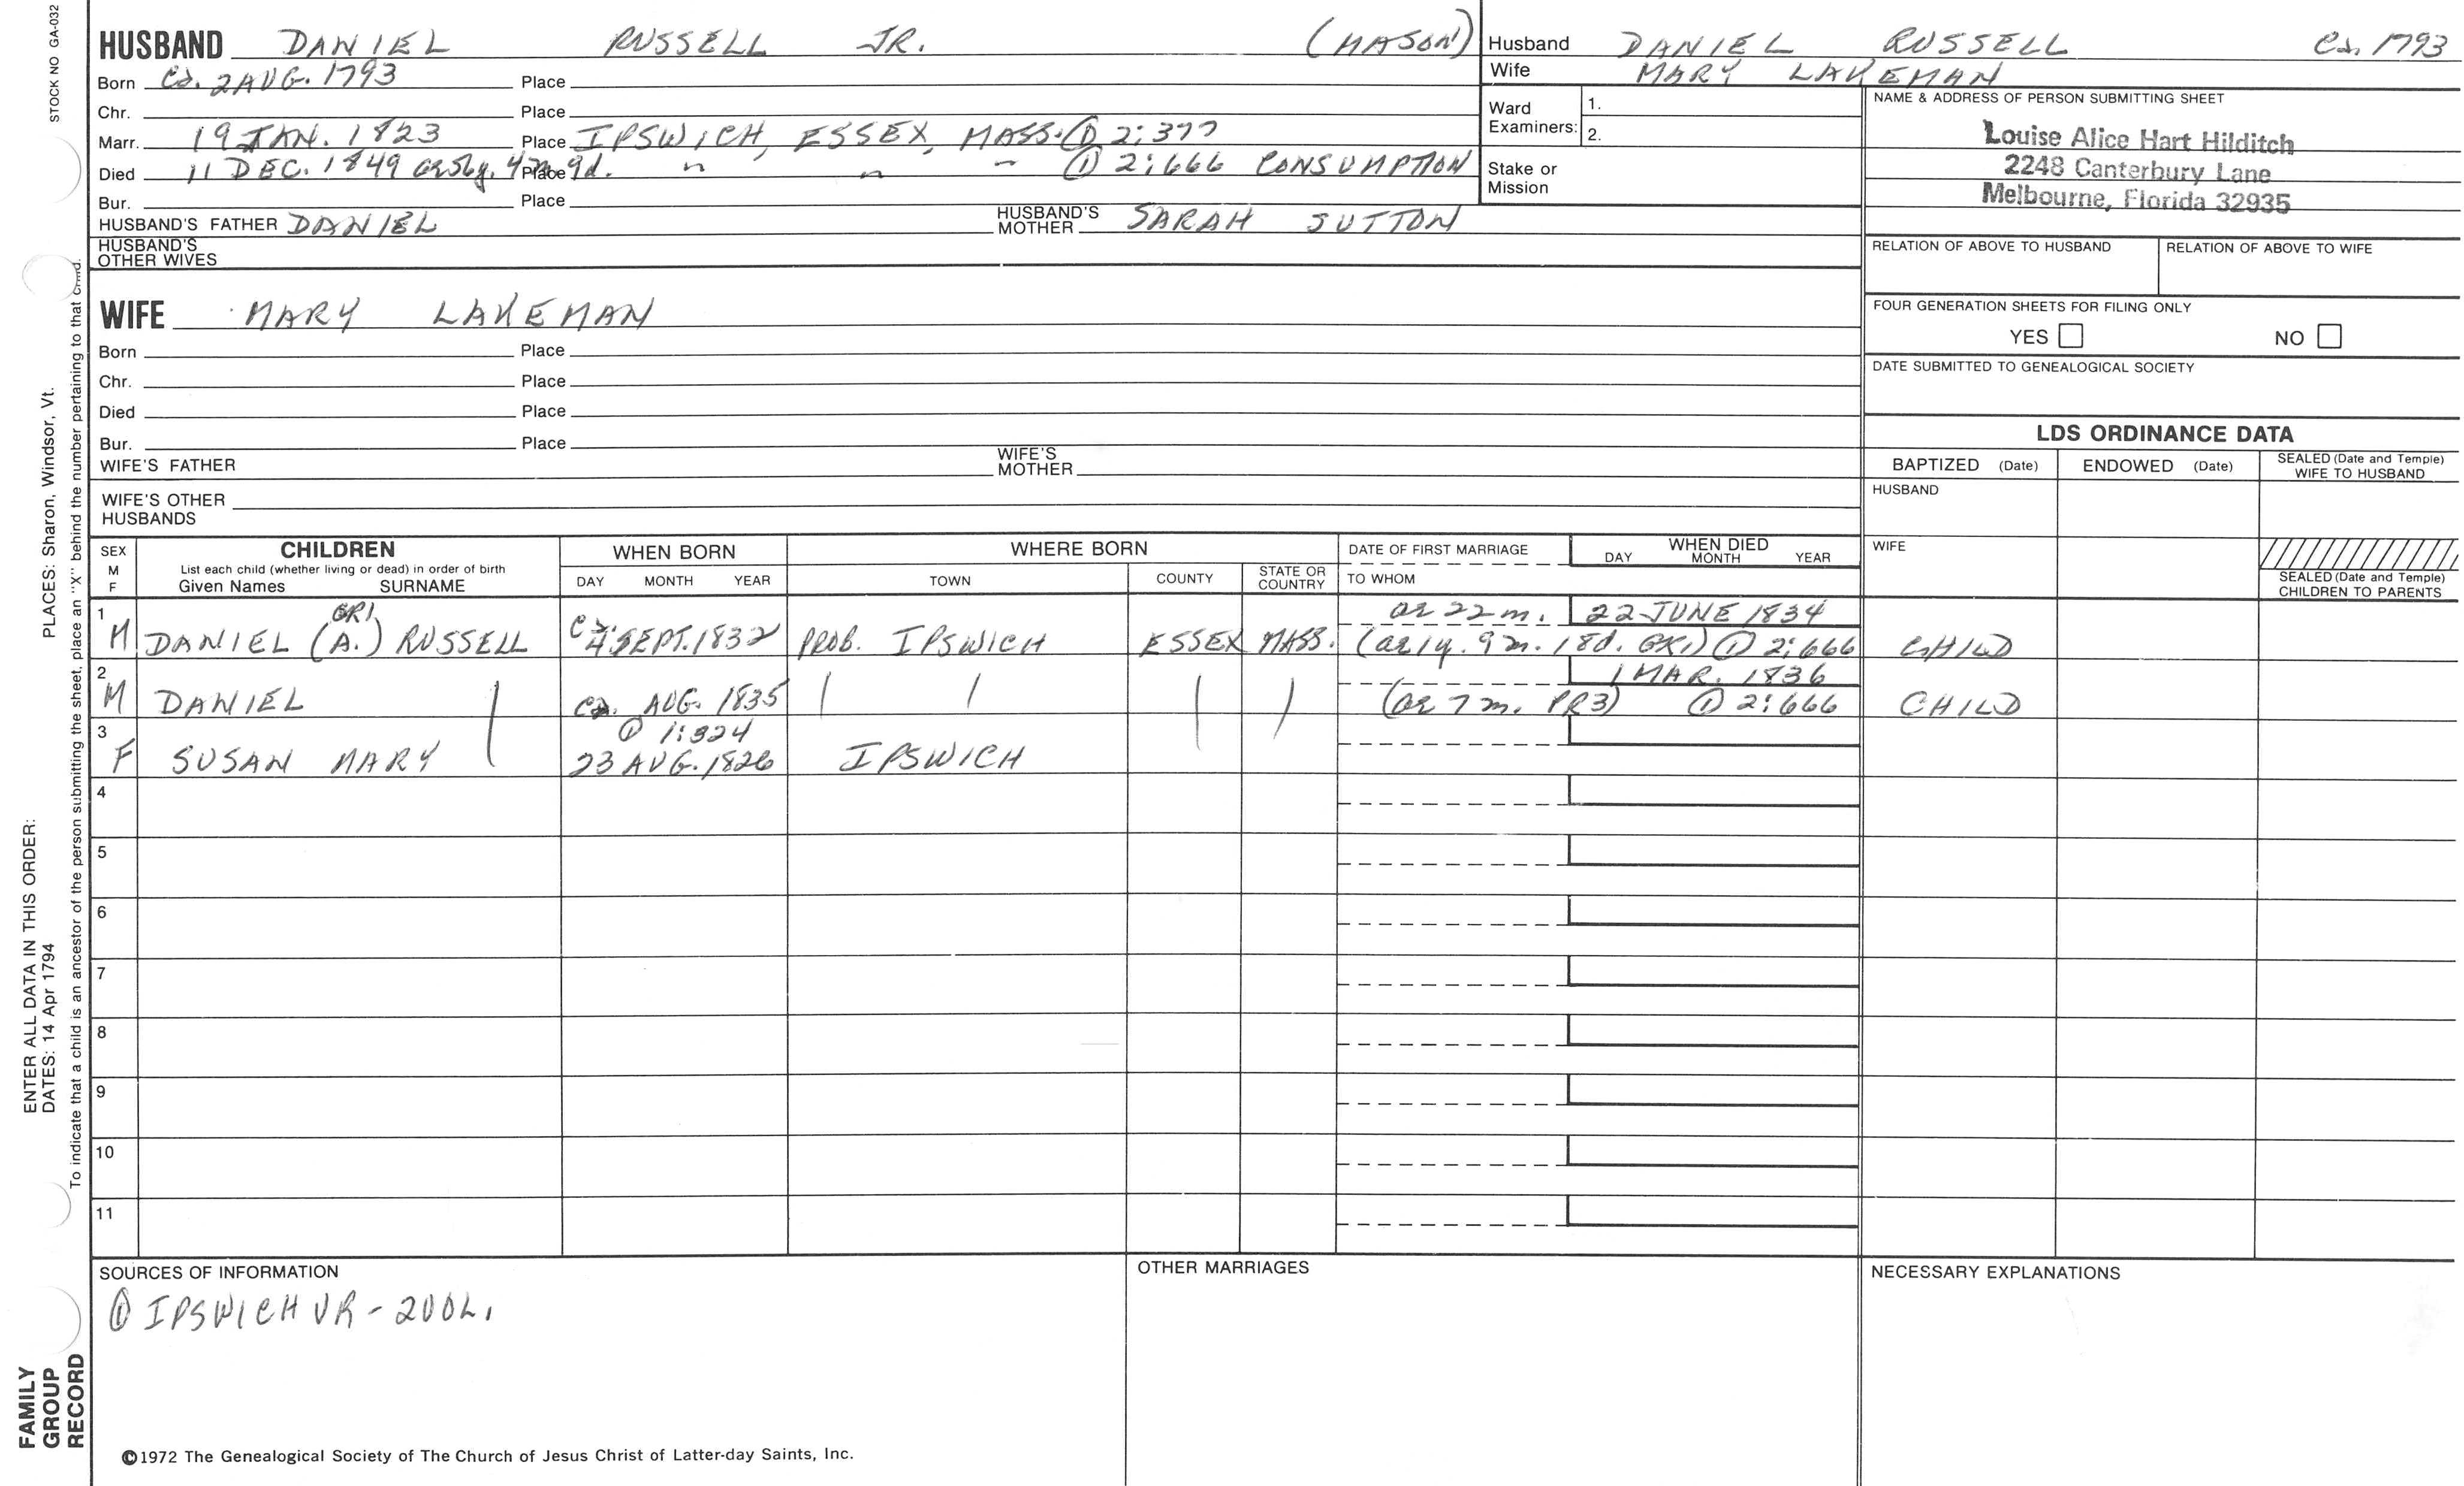 STOCK NO GA-032
HUSBAND DANIEL RUSSELL JR. (MASON)
Born Ca. 2 AUG. 1793 Place
Chr. Place
Marr. 19 JAN. 1823 Place IPSWICH, ESSEX, MASS. ① 2:377
Died 11 DEC. 1849 ae 56y. 4m. 9d. Place " " " ① 2:666 CONSUMPTION
Bur. Place
HUSBAND'S FATHER DANIEL HUSBAND'S MOTHER SARAH SUTTON
HUSBAND'S OTHER WIVES
WIFE MARY LAKEMAN
Born Place
Chr. Place
Died Place
Bur. Place
WIFE'S FATHER WIFE'S MOTHER
WIFE'S OTHER HUSBANDS
Husband DANIEL RUSSELL Ca. 1793
Wife MARY LAKEMAN
Ward Examiners: 1.
2.
Stake or Mission
NAME & ADDRESS OF PERSON SUBMITTING SHEET
Louise Alice Hart Hilditch
2248 Canterbury Lane
Melbourne, Florida 32935
RELATION OF ABOVE TO HUSBAND RELATION OF ABOVE TO WIFE
FOUR GENERATION SHEETS FOR FILING ONLY
YES NO
DATE SUBMITTED TO GENEALOGICAL SOCIETY
LDS ORDINANCE DATA
BAPTIZED (Date) ENDOWED (Date) SEALED (Date and Temple) WIFE TO HUSBAND
HUSBAND
WIFE
SEALED (Date and Temple) CHILDREN TO PARENTS
SEX M F CHILDREN WHEN BORN WHERE BORN DATE OF FIRST MARRIAGE WHEN DIED
List each child (whether living or dead) in order of birth
Given Names SURNAME DAY MONTH YEAR TOWN COUNTY STATE OR COUNTRY TO WHOM DAY MONTH YEAR
1 GR1 ae 22 m. 22 JUNE 1834
M DANIEL (A.) RUSSELL Ca. 4 SEPT. 1832 PROB. IPSWICH ESSEX MASS. (ae 1y. 9m. 18d. GR1) ① 2:666 CHILD
2 1 MAR. 1836
M DANIEL Ca. AUG. 1835 (ae 7 m. PR3) ① 2:666 CHILD
3 ① 1:324
F SUSAN MARY 23 AUG. 1826 IPSWICH
4
5
6
7
8
9
10
11
SOURCES OF INFORMATION
① IPSWICH VR - 2 VOL.
OTHER MARRIAGES
NECESSARY EXPLANATIONS
©1972 The Genealogical Society of The Church of Jesus Christ of Latter-day Saints, Inc.
FAMILY GROUP RECORD
ENTER ALL DATA IN THIS ORDER:
DATES: 14 Apr 1794
PLACES: Sharon, Windsor, Vt.
To indicate that a child is an ancestor of the person submitting the sheet, place an "X" behind the number pertaining to that child.